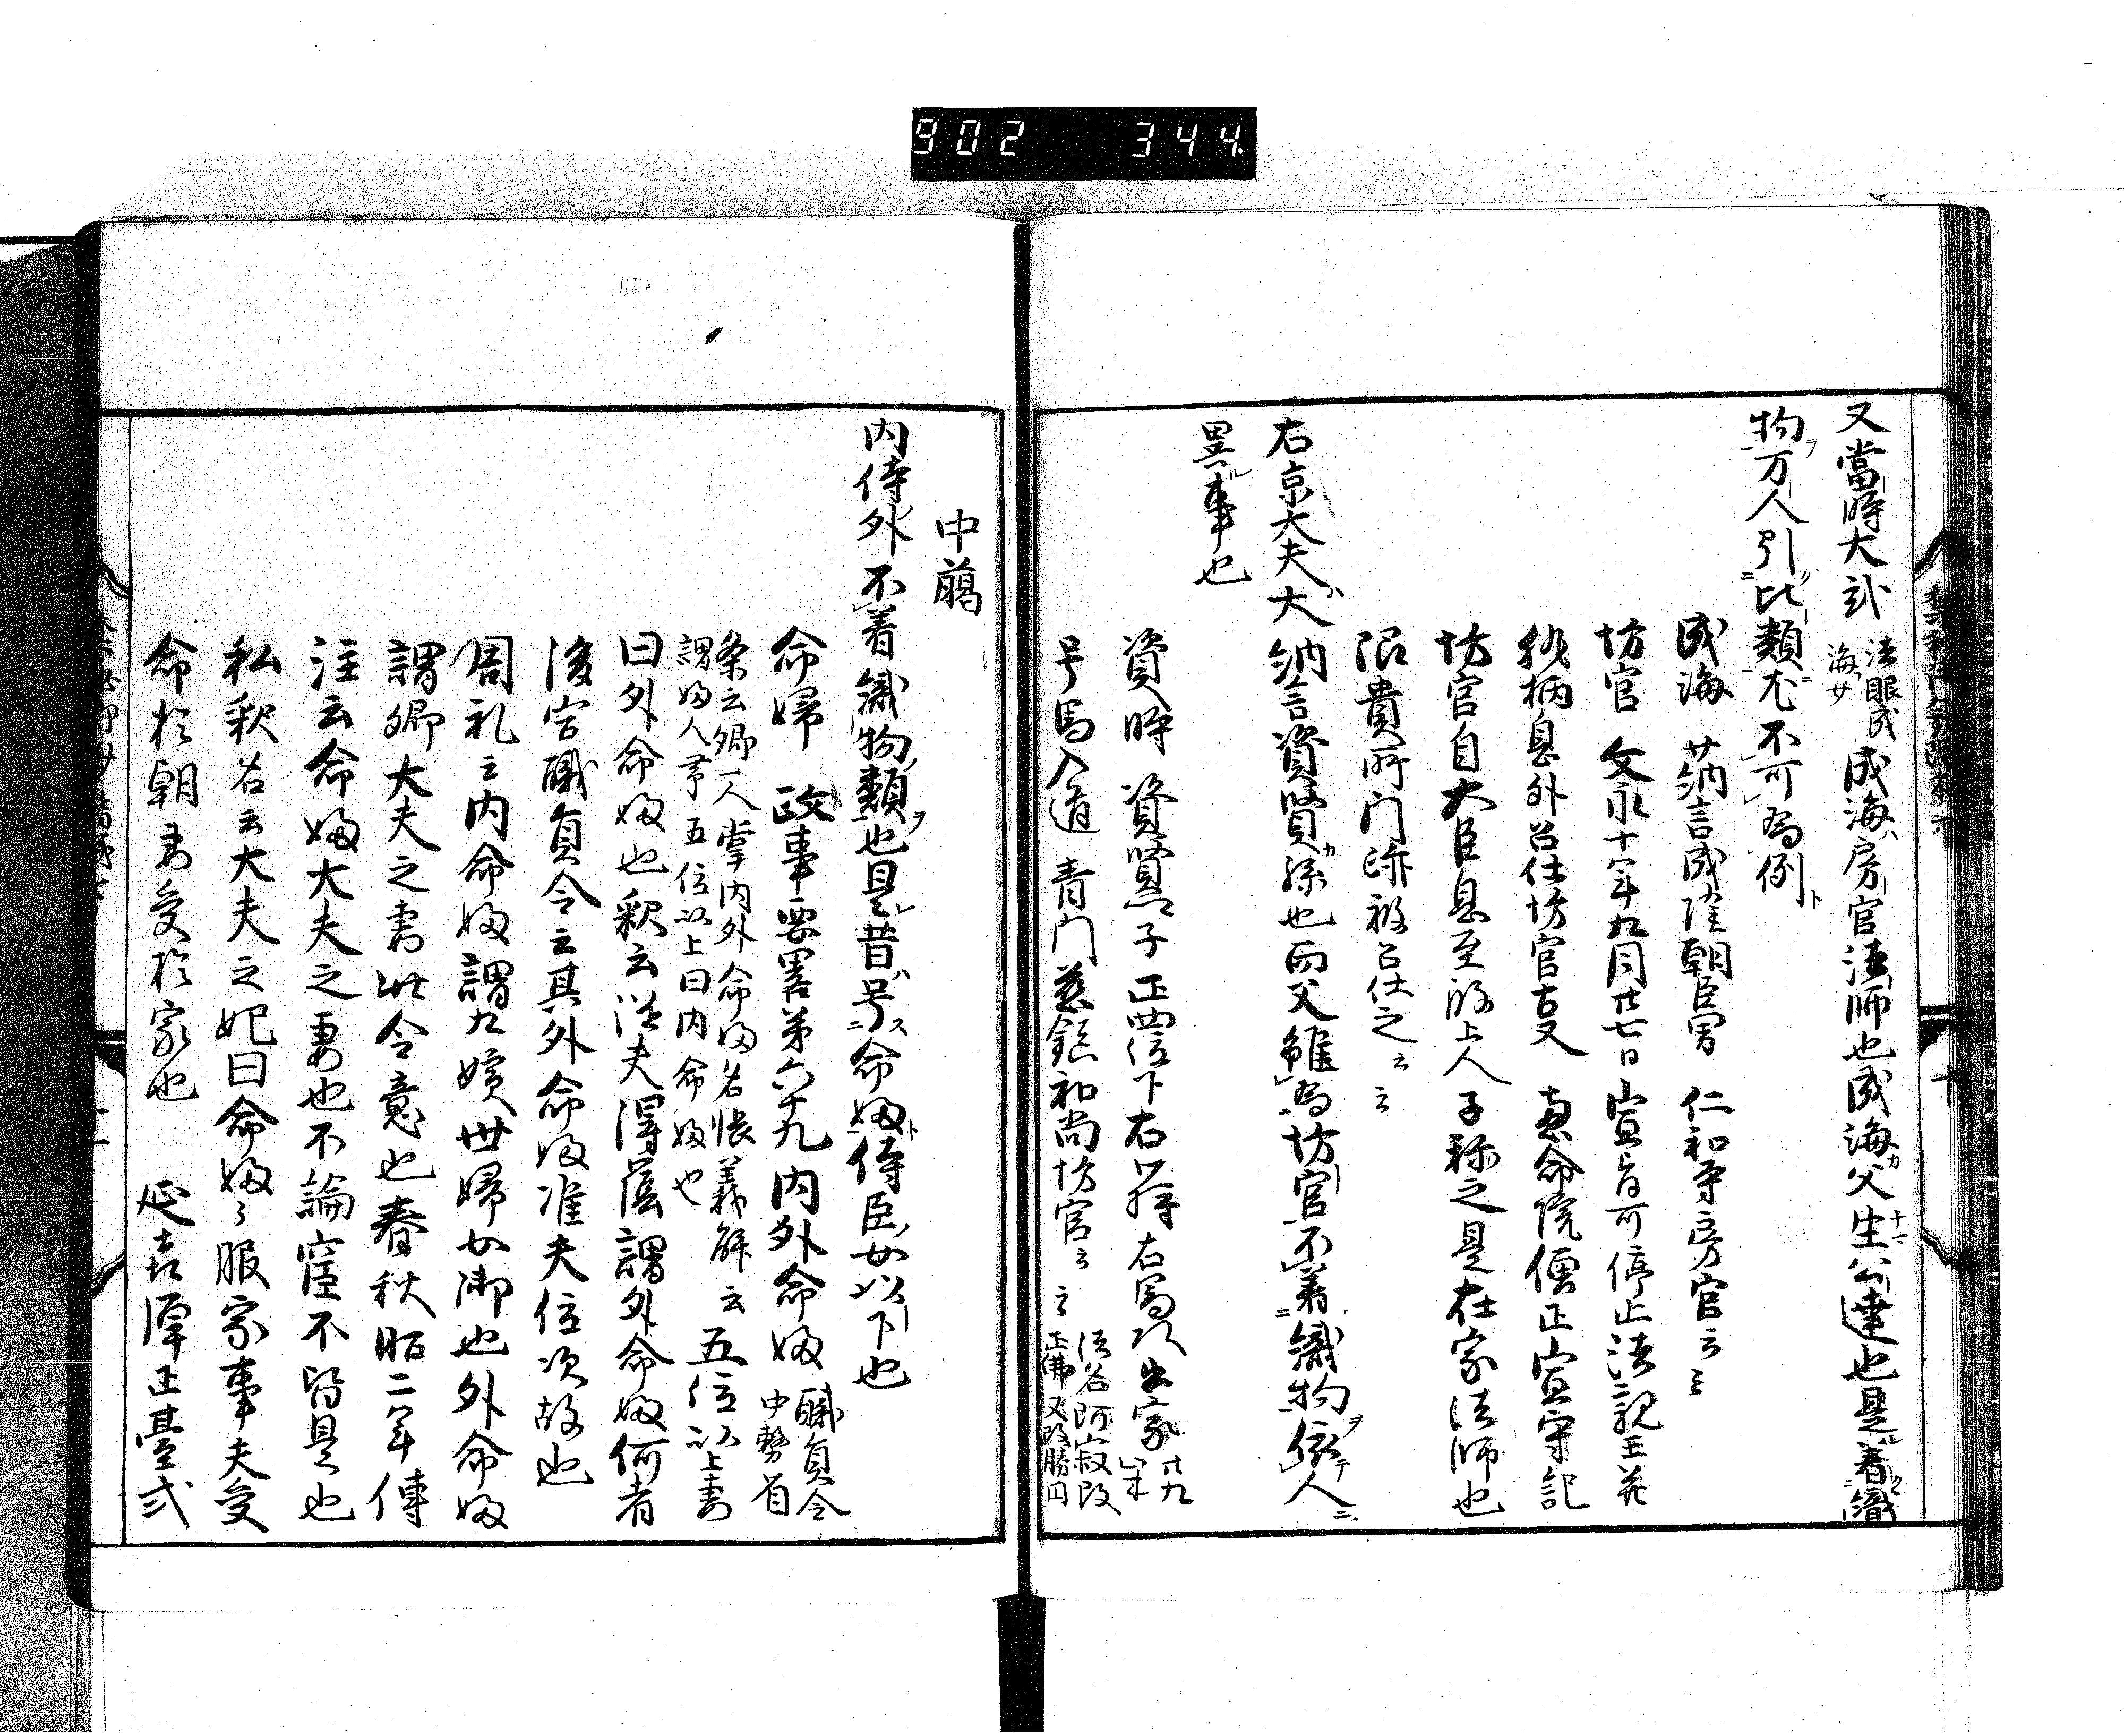 902 344
又當時大弐法眼成海女成海房官法師也成海父生公達也是着織
物万人引比類尤不可為例
成海 少納言成隆朝臣男 仁和寺房官云々
坊官 文永十年九月廿七日宣旨可停止法親王并
執柄息外召仕坊官吉又 惠命院僧正宣守記
坊官自大臣息至殿上人子称之是在家法師也
限貴所門跡被召仕之云々
右京大夫大納言資賢孫也而父雖為坊官不着織物依人
異事也
資時 資賢子 正四位下右少将 右馬頭出家
号馬入道 青門慈鎮和尚坊官云々 法名阿寂改正佛又改勝円
中﨟
内侍外不着織物類也是昔号命婦侍臣女以下也
命婦 政事要畧第六十九内外命婦 職員令中務省
条云卿一人掌内外命婦名帳義解云
謂婦人帯五位以上曰内命婦也 五位以上妻
曰外命婦也釈云従夫得蔭謂外命婦何者
後宮職員令云其外命婦准夫位次故也
周礼云内命婦謂九嬪世婦女御也外命婦
謂卿大夫之妻此令意也春秋昭二年傳
注云命婦大夫之妻也不論宦不皆是也
私釈名云大夫之妃曰命婦々服家事夫受
命於朝妻受於家也 延喜弾正臺式